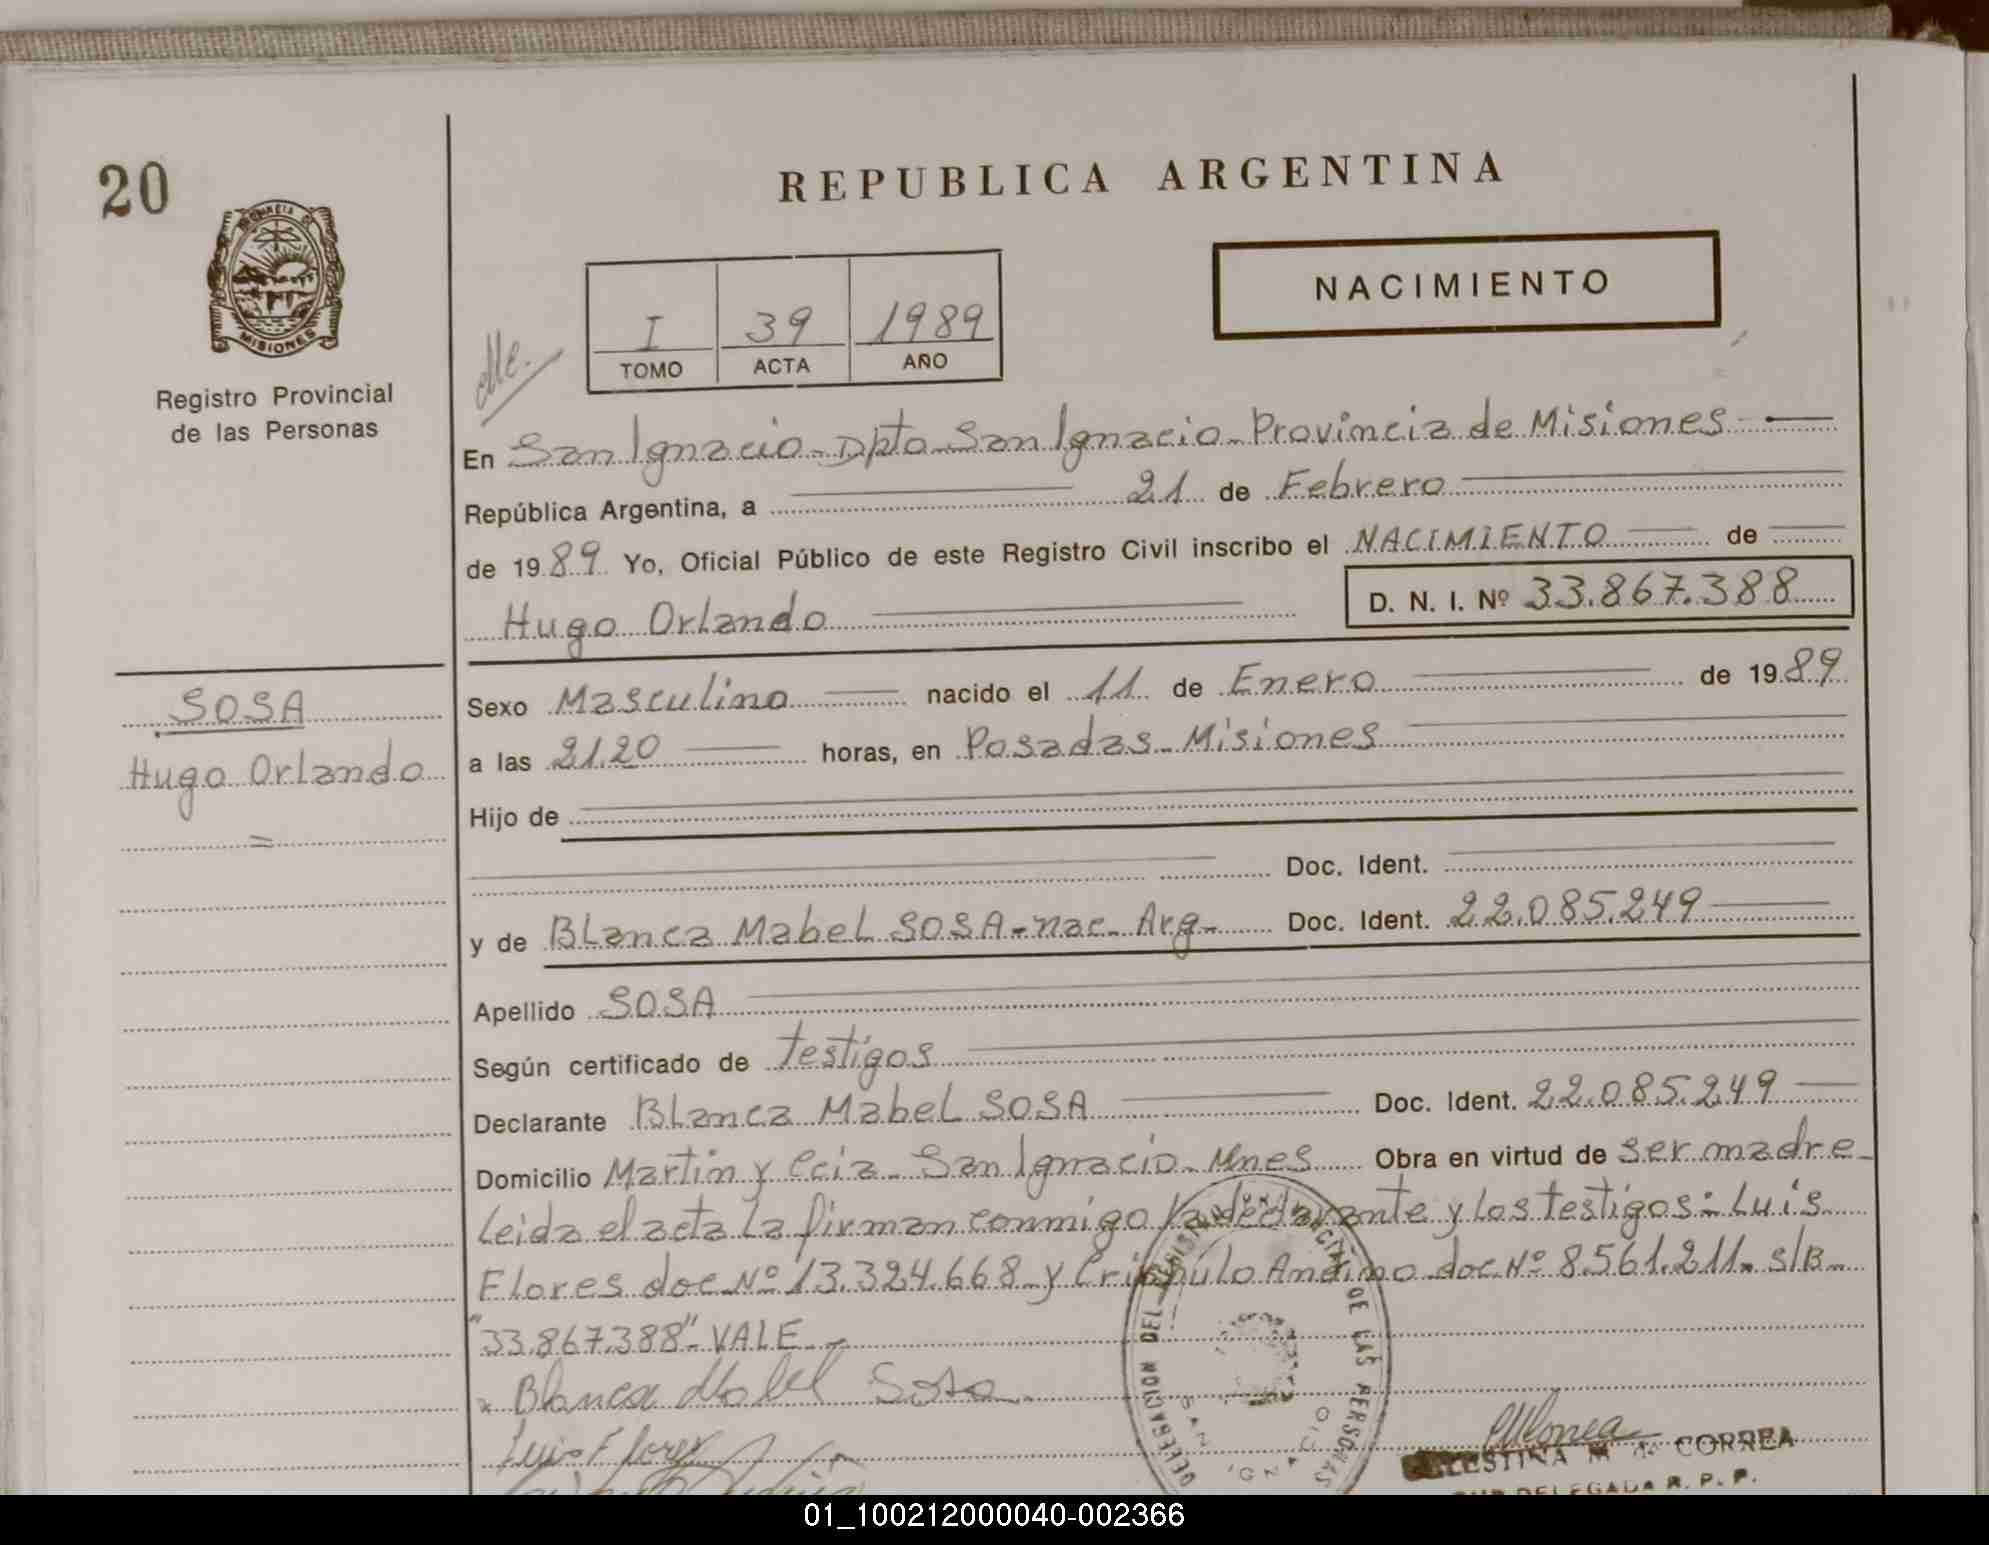 20
REPUBLICA ARGENTINA
NACIMIENTO
I 39 1989
TOMO ACTA AÑO
PROVINCIA DE
MISIONES
Registro Provincial
de las Personas
En San Ignacio - Dpto San Ignacio - Provincia de Misiones
República Argentina, a 21 de Febrero
de 1989 Yo, Oficial Público de este Registro Civil inscribo el NACIMIENTO de
Hugo Orlando D. N. I. Nº 33.867.388
SOSA
Hugo Orlando
=
Sexo Masculino nacido el 11 de Enero de 1989
a las 21.20 horas, en Posadas - Misiones
Hijo de
Doc. Ident.
y de Blanca Mabel SOSA - nac. Arg. - Doc. Ident. 22.085.249
Apellido SOSA
Según certificado de testigos
Declarante Blanca Mabel SOSA Doc. Ident. 22.085.249
Domicilio Martin y Ecia - San Ignacio - Mnes Obra en virtud de ser madre -
Leida el acta la firman conmigo la declarante y los testigos: Luis
Flores doc Nº 13.324.668 y Crispulo Andino doc Nº 8.561.211. S/B -
"33.867.388" - VALE -
Blanca Mabel Sosa
Luis Flores
DELEGACION DEL REGISTRO PROVINCIAL DE LAS PERSONAS
SAN IGNACIO
CELESTINA M. de CORREA
SUB DELEGADA R. P. P.
01_100212000040-002366